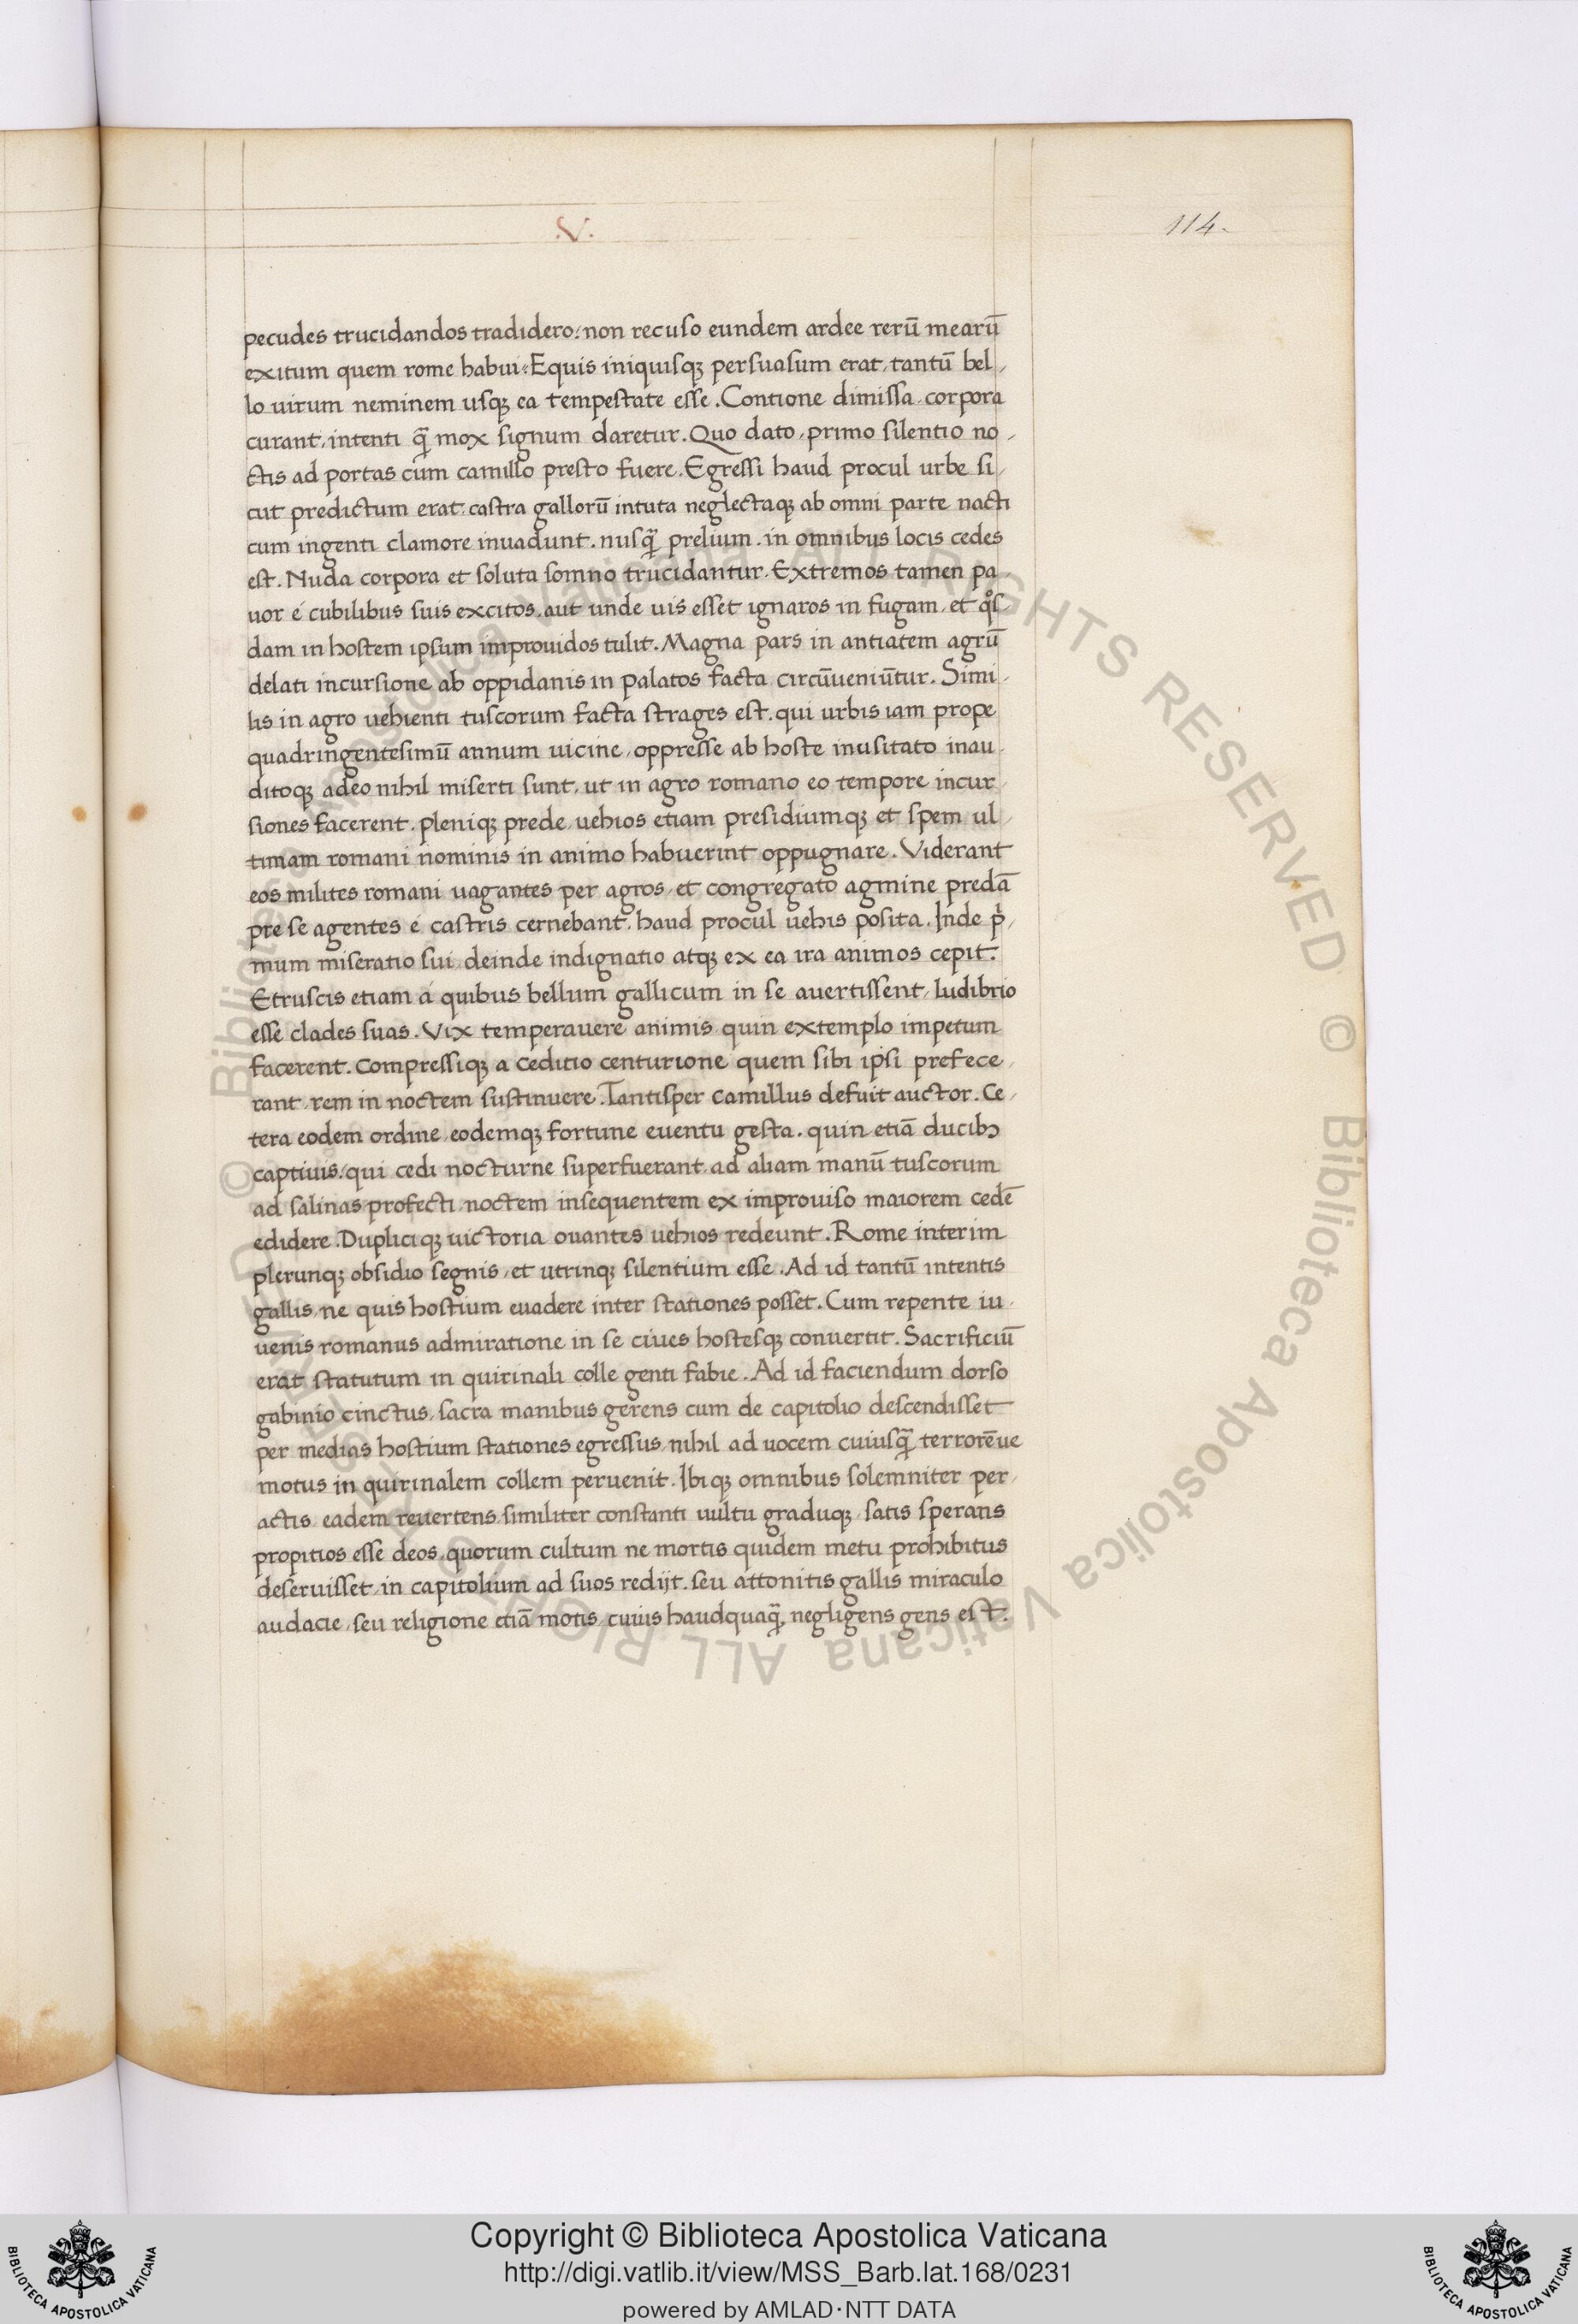 .V.
114.
pecudes trucidandos tradidero: non recuso eundem ardee rerū mearū
exitum quem rome habui. Equis iniquisqꝫ persuasum erat, tantū bel,
lo uirum neminem usqꝫ ea tempestate esse. Contione dimissa, corpora
curant, intenti q̄ mox signum daretur. Quo dato, primo silentio no,
ctis ad portas cum camillo presto fuere. Egressi haud procul urbe si,
cut predictum erat, castra gallorū intuta neglectaqꝫ ab omni parte nacti
cum ingenti clamore inuadunt. nusq̄ prelium. in omnibus locis cedes
est. Nuda corpora et soluta somno trucidantur. Extremos tamen pa,
uor é cubilibus suis excitos. aut unde uis esset ignaros in fugam, et qͦs,
dam in hostem ipsum improuidos tulit. Magna pars in antiatem agrū
delati incursione ab oppidanis in palatos facta circūueniūtur. Simi,
lis in agro uehienti tuscorum facta strages est. qui urbis iam prope
quadringentesimū annum uicine, oppresse ab hoste inusitato inau,
ditoqꝫ adeo nihil miserti sunt, ut in agro romano eo tempore incur,
siones facerent. pleniqꝫ prede, uehios etiam presidiumqꝫ et spem ul,
timam romani nominis in animo habuerint oppugnare. Viderant
eos milites romani uagantes per agros, et congregato agmine predā
pre se agentes é castris cernebant. haud procul uehis posita. Inde pⁱ,
mum miseratio sui deinde indignatio atqꝫ ex ea ira animos cepit.
Etruscis etiam á quibus bellum gallicum in se auertissent, ludibrio
esse clades suas. Vix temperauere animis quin extemplo impetum
facerent. compressiqꝫ a ceditio centurione quem sibi ipsi prefece,
rant, rem in noctem sustinuere. Tantisper camillus defuit auctor. Ce,
tera eodem ordine, eodemqꝫ fortune euentu gesta. quin etiā ducibꝫ
captiuis, qui cedi nocturne superfuerant, ad aliam manū tuscorum
ad salinas profecti, noctem insequentem ex improuiso maiorem cedē
edidere. Dupliciqꝫ uictoria ouantes uehios redeunt. Rome interim
plerunqꝫ obsidio segnis, et utrinqꝫ silentium esse. Ad id tantū intentis
gallis, ne quis hostium euadere inter stationes posset. Cum repente iu,
uenis romanus admiratione in se ciues hostesqꝫ conuertit. Sacrificiū
erat statutum in quirinali colle genti fabie. Ad id faciendum dorso
gabinio cinctus, sacra manibus gerens cum de capitolio descendisset
per medias hostium stationes egressus, nihil ad uocem cuiusq̄ terrorēue
motus in quirinalem collem peruenit. Ibiqꝫ omnibus solemniter per,
actis, eadem reuertens similiter constanti uultu graduqꝫ, satis sperans
propitios esse deos, quorum cultum ne mortis quidem metu prohibitus
deseruisset, in capitolium ad suos redijt. seu attonitis gallis miraculo
audacie, seu religione etiā motis, cuius haudquaq̄ negligens gens est.
© Biblioteca Apostolica Vaticana ALL RIGHTS RESERVED
© Biblioteca Apostolica Vaticana ALL RIGHTS RESERVED
Copyright © Biblioteca Apostolica Vaticana
http://digi.vatlib.it/view/MSS_Barb.lat.168/0231
powered by AMLAD·NTT DATA
BIBLIOTECA APOSTOLICA VATICANA
BIBLIOTECA APOSTOLICA VATICANA